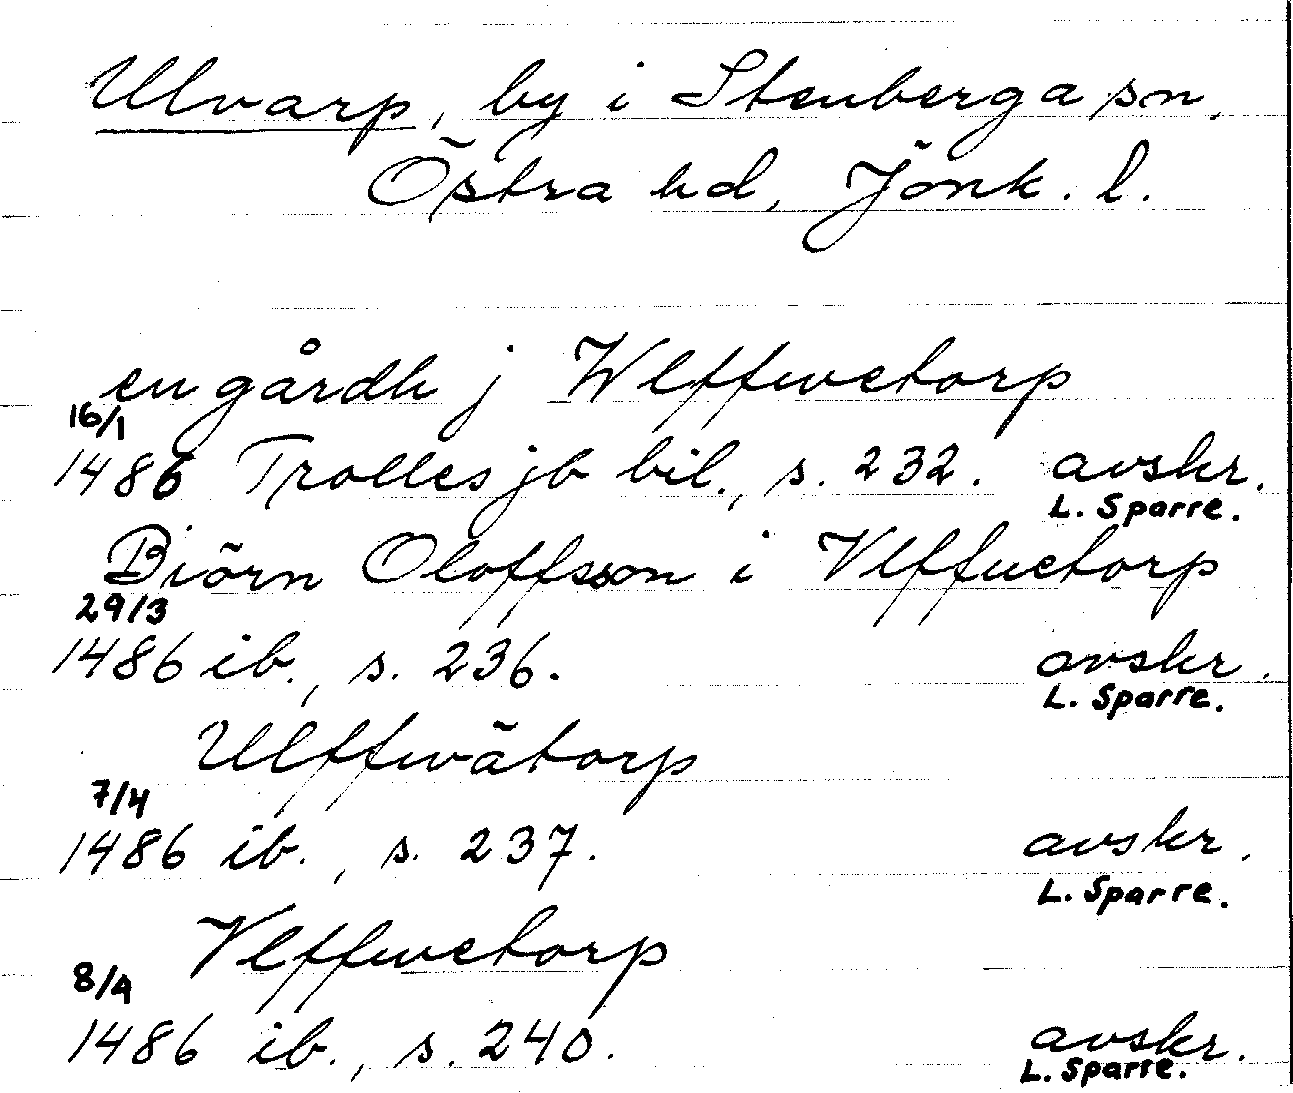 Ulvarp, by i Stenberga sn,
Östra hd, Jönk. l.
en gårdh j Wlffwetorp
16/1
1486 Trolles jb bil., s. 232. avskr.
L. Sparre.
Biörn Oloffsson i Vlffuetorp
29/3
1486 ib., s. 236. avskr.
L. Sparre.
Ulffwätorp
7/4
1486 ib., s. 237. avskr.
L. Sparre.
Vlffwetorp
8/4
1486 ib., s. 240. avskr.
L. Sparre.